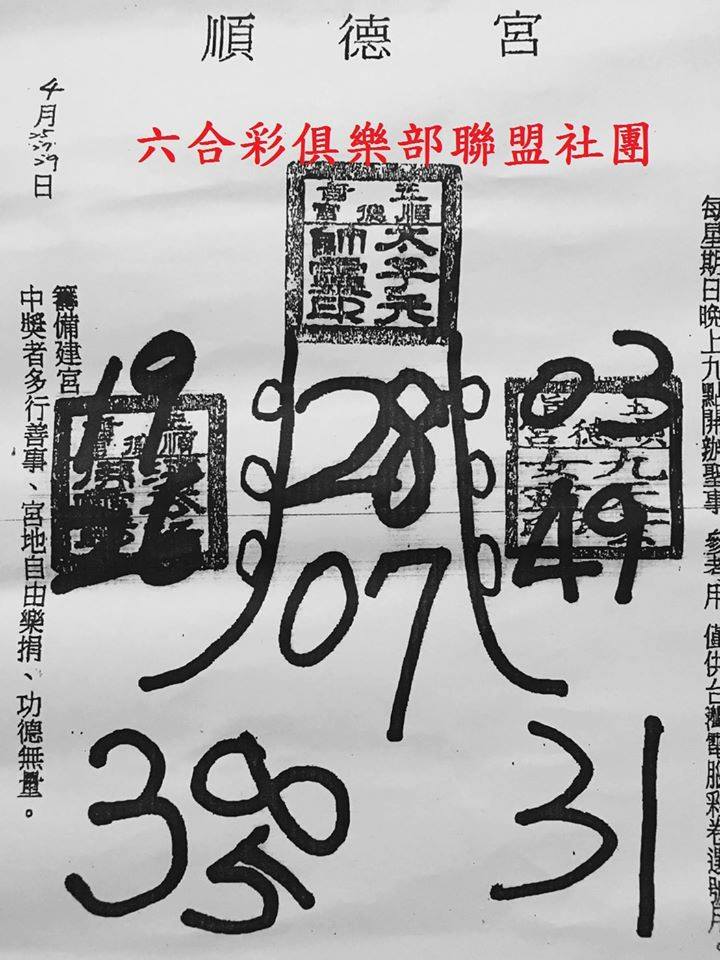 順德宮
4月25.27.29日
六合彩俱樂部聯盟社團
每星期日晚上九點開辦聖事 參考用 僅供台灣電腦彩卷選號用。
太子元
帥靈印
19
28
03
26
49
07
38
5
31
籌備建宮
中獎者多行善事、宮地自由樂捐、功德無量。